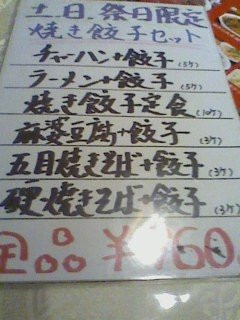 土.日.祭日限定
焼き餃子セット
チャーハン+餃子(5ヶ)
ラーメン+餃子(5ヶ)
焼き餃子定食(10ヶ)
麻婆豆腐+餃子(3ヶ)
五目焼きそば+餃子(3ヶ)
硬焼きそば+餃子(3ヶ)
全品 ¥760